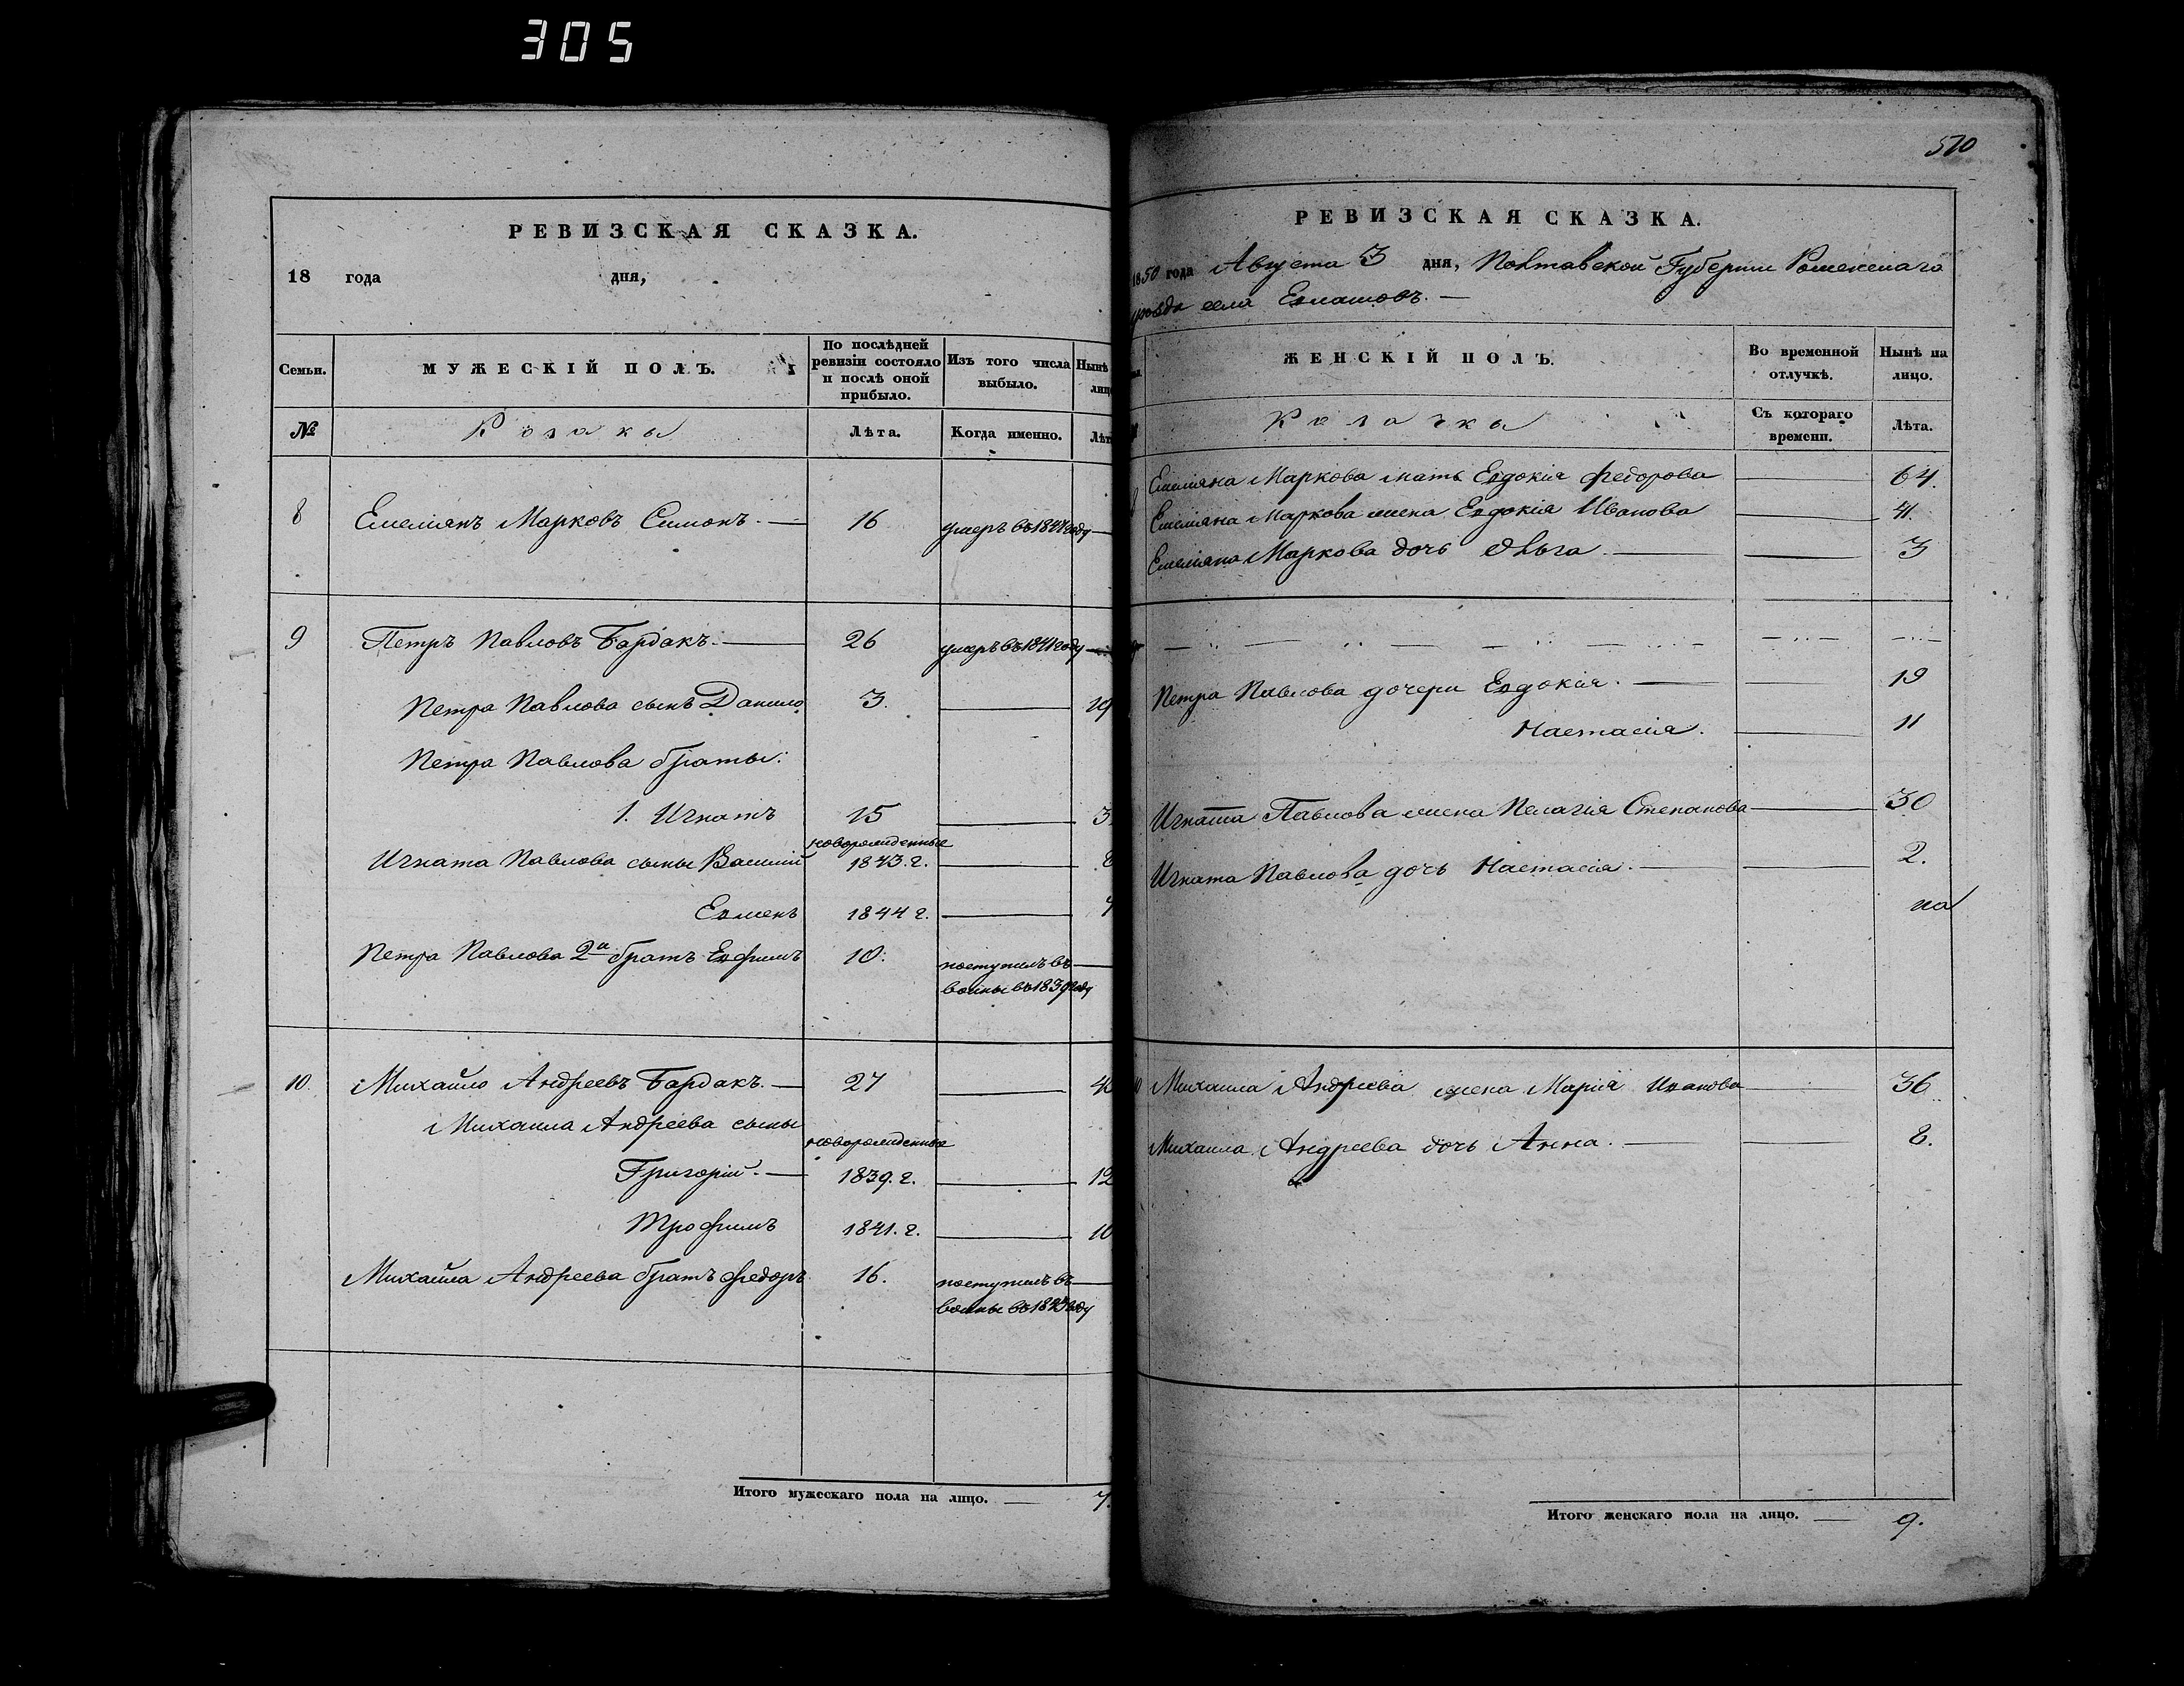 305
РЕВИЗСКАЯ СКАЗКА.
18 года дня,
Семьи.
МУЖЕСКІЙ ПОЛЪ.
По послѣдней ревизіи состояло и послѣ оной прибыло.
Изъ того числа выбыло.
Нынѣ
№
Козаки
Лѣта.
Когда именно.
8 Емеліянъ Марковъ Симонъ. — 16 умеръ въ 1841 году —
9 Петръ Павловъ Бардакъ. — 26 умеръ въ 1841 году —
Петра Павлова сынъ Данило 3. — 19
Петра Павлова браты:
1. Игнатъ 15 — 3
новорожденные
Игната Павлова сыны Василій 1843. г. — 8
Евменъ 1844 г. — 7
Петра Павлова 2й братъ Евфимъ 10. поступилъ въ —
воины въ 1839 году
10. Михайло Андреевъ Бардакъ. — 27 — 4
Михаила Андреева сыны
новорожденные
Григорій. — 1839. г. — 12
Трофимъ 1841. г. — 10
Михайла Андреева братъ Федоръ 16. поступилъ въ —
воины въ году
Итого мужескаго пола на лицо. — 7.
570
РЕВИЗСКАЯ СКАЗКА.
1850 года Августа 3 дня, Полтавской Губерніи Роменскаго
уѣзда села
ЖЕНСКІЙ ПОЛЪ.
Во временной отлучкѣ.
Нынѣ на лицо.
Козачки
Съ котораго времени.
Лѣта.
8 Емеліяна Маркова мать Евдокія Федорова — 64.
Емеліяна Маркова жена Евдокія Иванова — 41.
Емеліяна Маркова дочь Ольга. — — 3
9
Петра Павлова дочери Евдокія. — — 19
Настасія. — 11
Игната Павлова жена Пелагія Степанова — 30
Игната Павлова дочь Настасія. — — 2.
на
10 Михаила Андреева жена Марія Иванова — 36
Михаила Андреева дочь Анна. — — 8.
Итого женскаго пола на лицо. — 9.